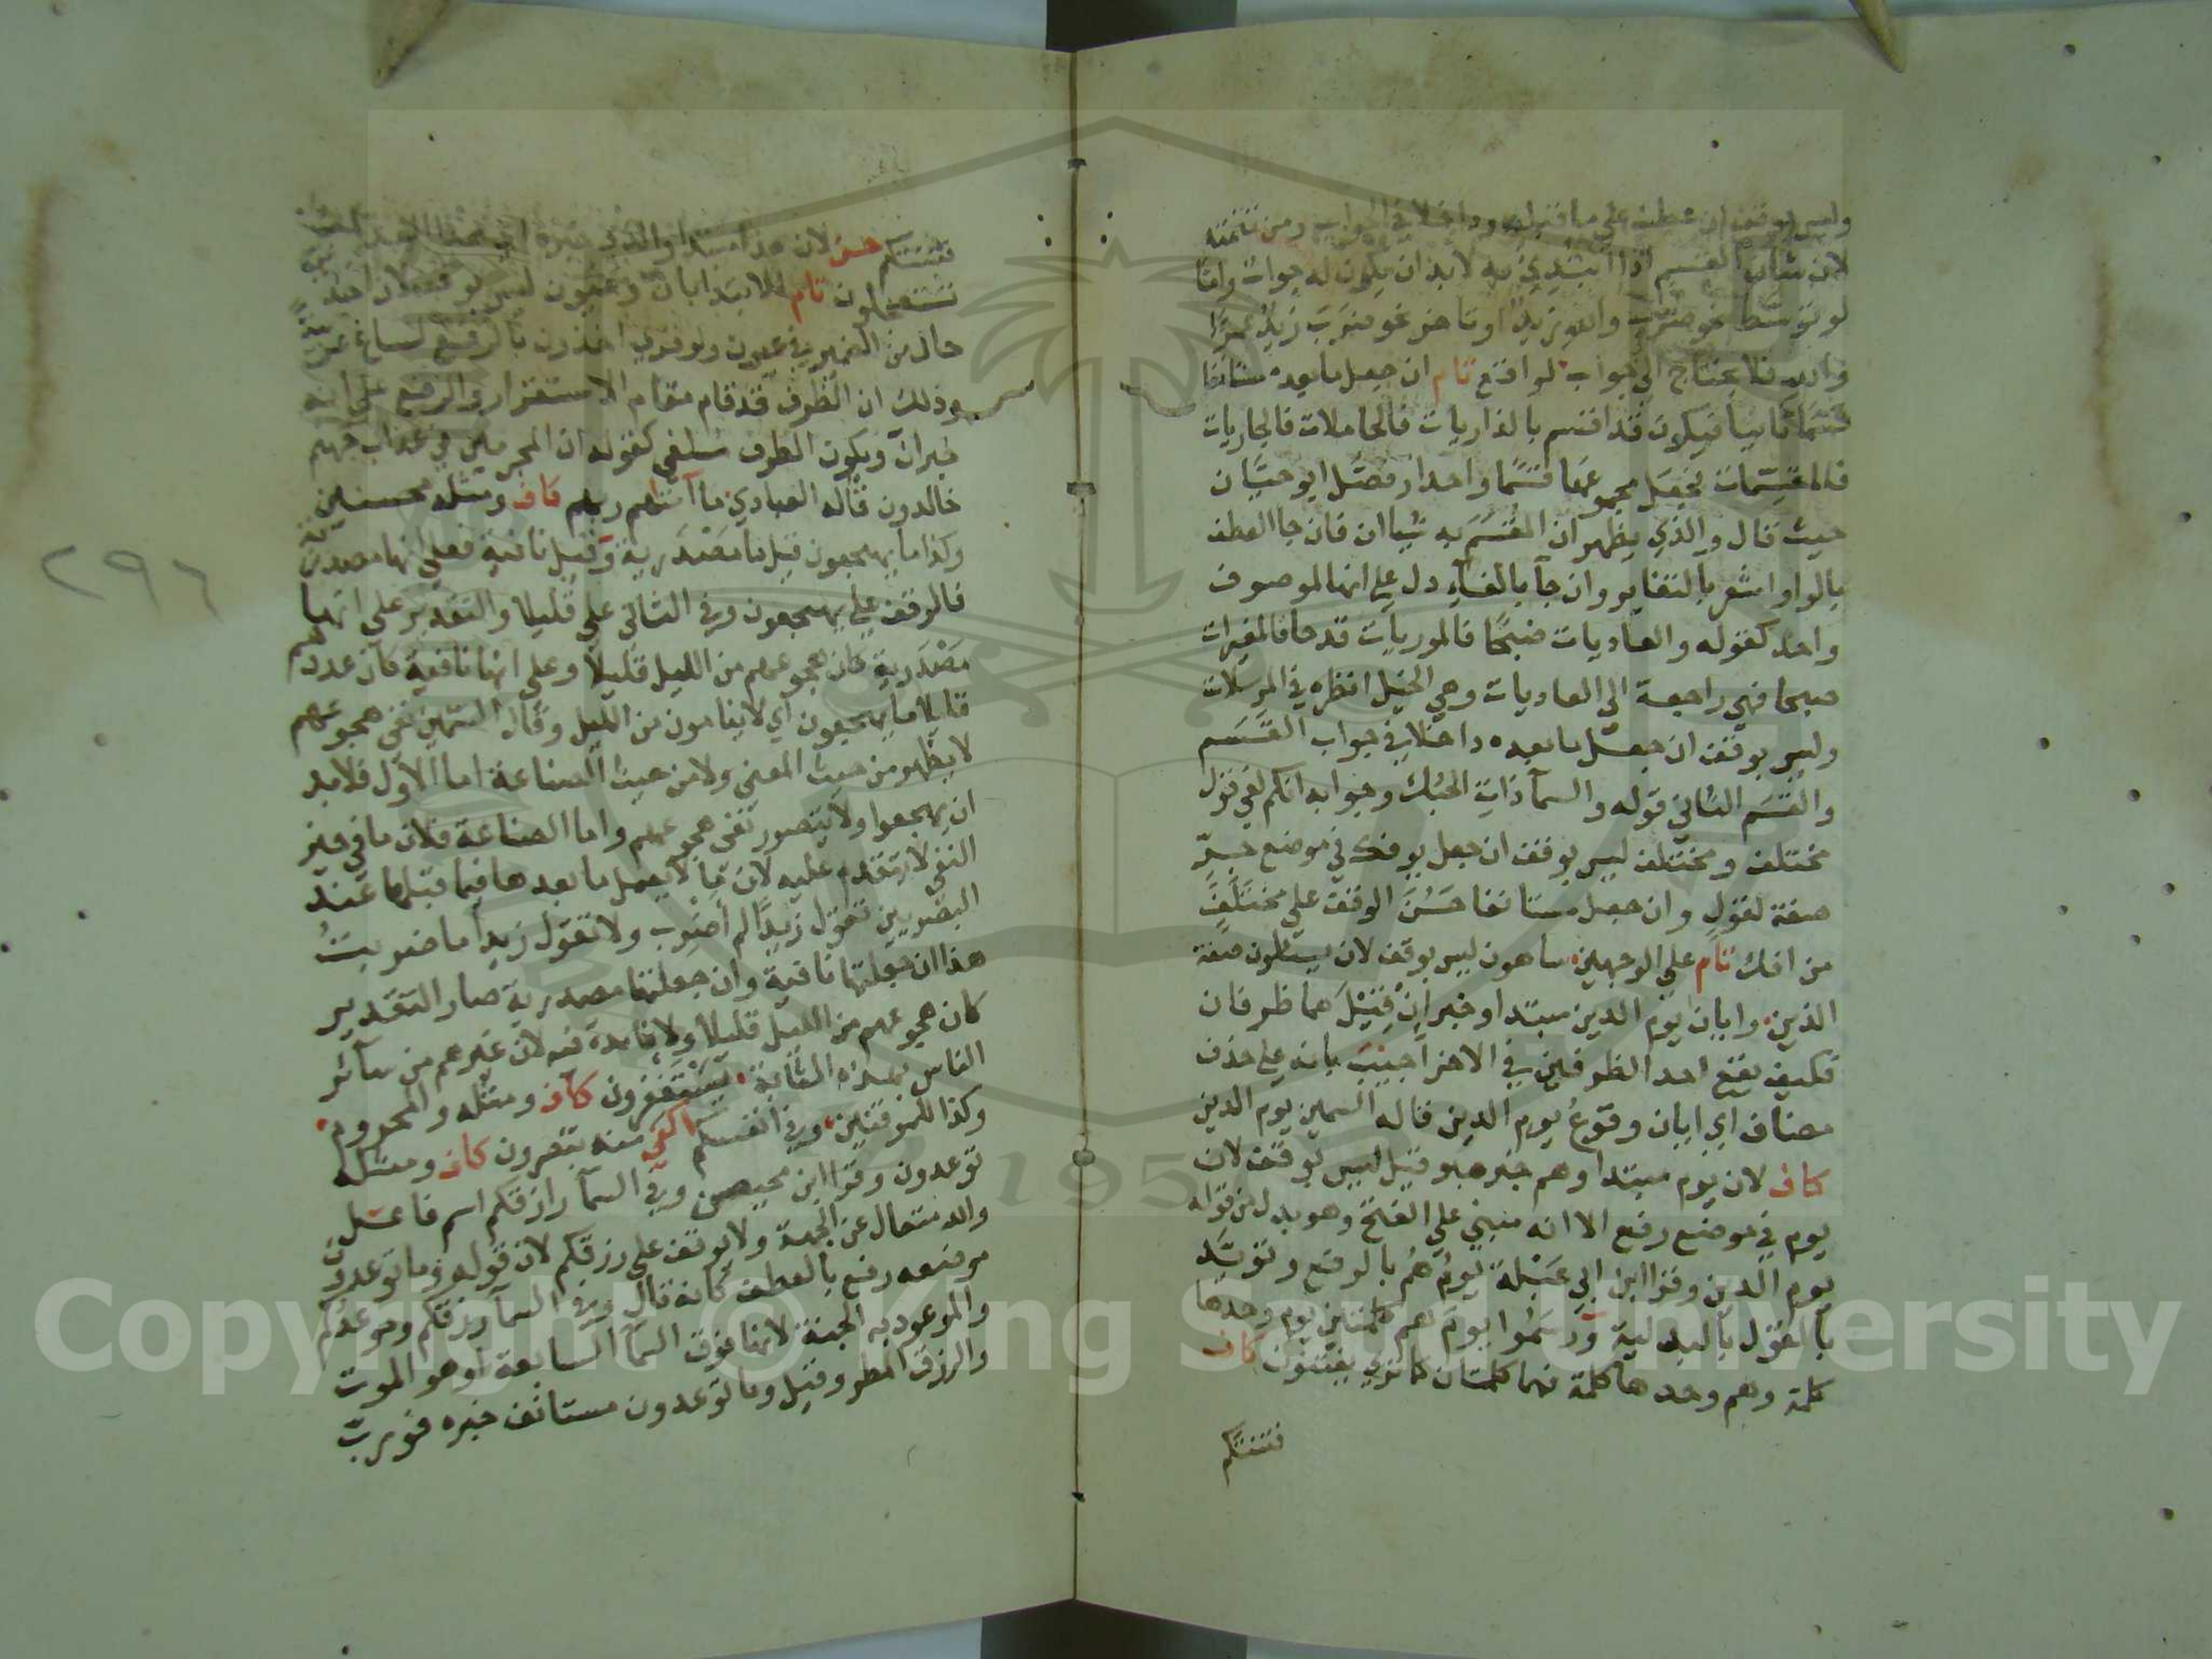 وليس بوقف ان عطف على ما قبله وداخلا في الجواب ومن تتمته
لان شان القسم اذا ابتدي به لابد ان يكون له جواب واما
لو توسط نحو ضرب والله زيد او تاخر نحو ضرب زيد عمرا
والله فلا يحتاج الى جواب لواقع تام ان جعل ما بعده مستانفا
قسما ثانيا فيكون قد اقسم بالذاريات فالحاملات فالجاريات
فالمقسمات فجعل مجموعها قسما واحدا وفصل ابو حيان
حيث قال والذي يظهر ان المقسم به شيان فان جا العطف
بالواو اشعر بالتغاير وان جا بالفاء دل على انها لموصوف
واحد كقوله والعاديات ضبحا فالموريات قدحا فالمغيرات
صبحا فهي راجعة الى العاديات وهي الخيل انظره في المرسلات
وليس بوقف ان جعل ما بعده داخلا في جواب القسم
والقسم الثاني قوله والسماء ذات الحبك وجوابه انكم لفي قول
مختلف ومختلف ليس بوقف ان جعل يوفك في موضع جر
صفة لقول وان جعل مستانفا حسن الوقف على مختلف
من افك تام على الوجهين ساهون ليس بوقف لان يسئلون صفة
الذين وايان يوم الدين مبتدا وخبر ان قيل هما ظرفان
فكيف يقع احد الظرفين في الاخر اجيب بانه على حذف
مضاف اي ايان وقوع يوم الدين قاله السمين يوم الدين
كاف لان يوم مبتدا وهم خبره وقيل ليس بوقف لان
يوم في موضع رفع الا انه مبني على الفتح وهو بدل من قوله
يوم الدين وقرا ابن ابي عبلة يوم هم بالرفع وتؤيد
بالقول بالبدلية ورسموا يوم هم كلمتين يوم وحدها
كلمة وهم وحدها كلمة فهما كلمتان كما ترى يفتنون كاف
فتنتكم
فتنتكم حسن لان هذا مبتدا والذي خبره اي هذا العذاب
تستعجلون تام للابتدا بان وعيون ليس بوقف لان اخذين
حال من الضمير في عيون ولو قري اخذون بالرفع لساغ
وذلك ان الظرف قد قام مقام الاستقرار والرفع على انه
خبر ان ويكون الظرف ملغى كقوله ان المجرمين في عذاب جهنم
خالدون قاله العبادي ما آتاهم ربهم كاف ومثله محسنين
وكذا ما يهجعون قيل ما مصدرية وقيل نافية فعلى انها مصدرية
فالوقف على يهجعون وفي الثاني على قليلا والتقدير على انها
مصدرية كان هجوعهم من الليل قليلا وعلى انها نافية كان عددهم
قليلا ما يهجعون اي لا ينامون من الليل وقال السمين نفي هجوعهم
لا يظهر من حيث المعنى ولا من حيث الصناعة اما الاول فلا بد
ان يهجعوا ولا يتصور نفي هجوعهم واما الصناعة فلان ما في حيز
النفي لا يتقدم عليه لان ما لا يعمل ما بعدها فيما قبلها عند
البصريين تقول زيدا لم اضرب ولا تقول زيدا ما ضربت
هذا ان جعلتها نافية وان جعلتها مصدرية صار التقدير
كان هجوعهم من الليل قليلا ولا فايدة فيه لان غيرهم من سائر
الناس بهذه المثابة يستغفرون كاف ومثله والمحروم
وكذا للموقنين وفي انفسكم اكفى منه تبصرون كاف ومثله
توعدون وقرا ابن محيصن وفي السماء رازقكم اسم فاعل
والله متعال عن الجهة ولا يوقف على رزقكم لان قوله وما توعدون
موضعه رفع بالعطف كانه قال وفي السماء رزقكم وموعدكم
والموعود به الجنة لانها فوق السماء السابعة او هو الموت
والرزق المطر وقيل وما توعدون مستانف خبره فورب
٢٩٦
Copyright © King Saud University
1957